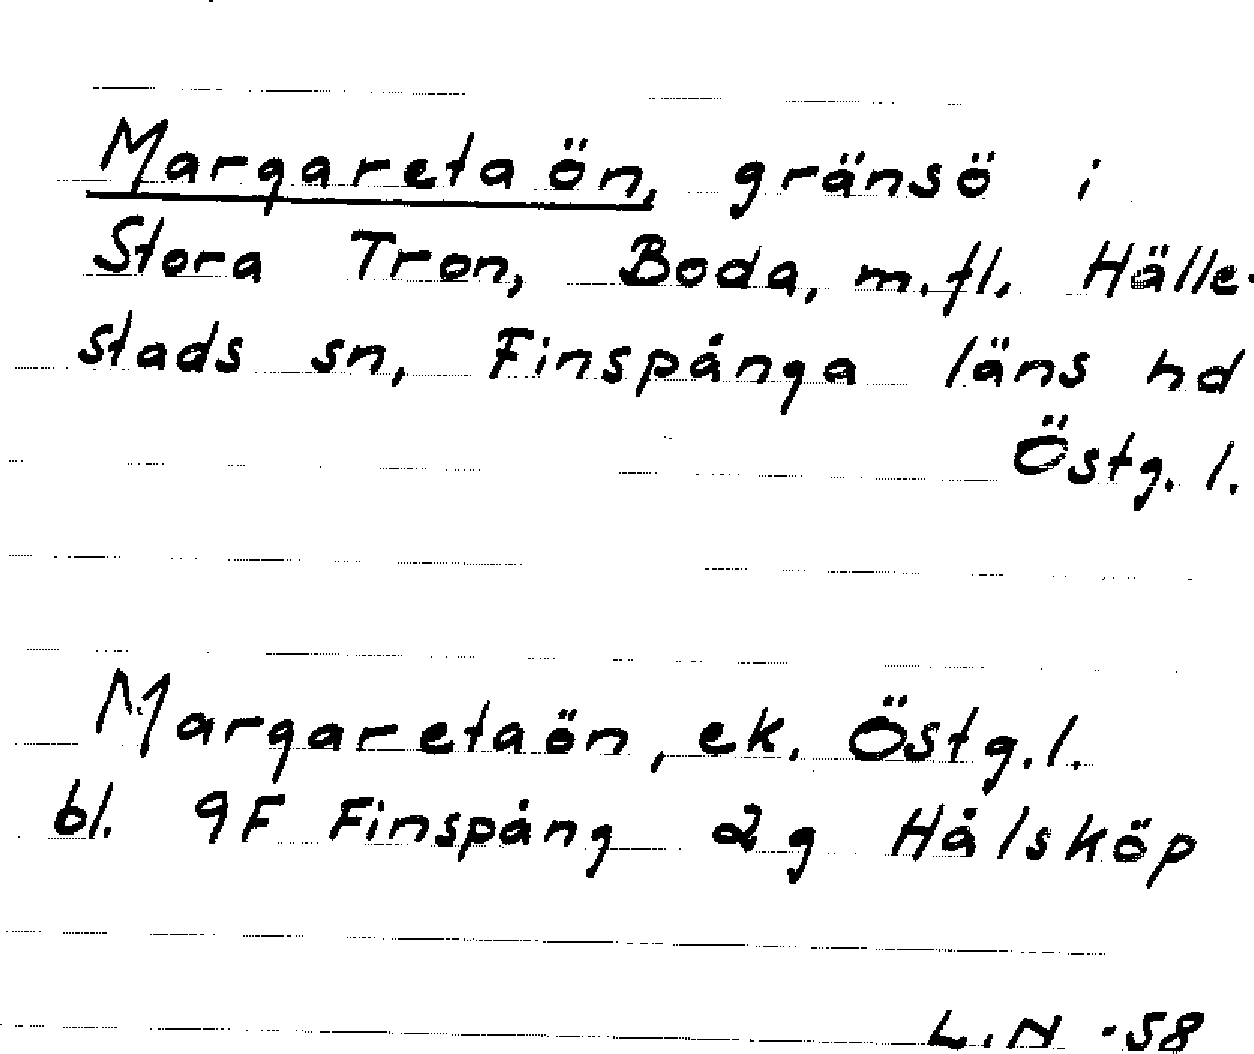 Margaretaön, gränsö i
Stora Tron, Boda, m.fl. Hälle-
stads sn, Finspånga läns hd
Östg. l.
Margaretaön, ek. Östg. l.
bl. 9F Finspång 2g Hålsköp
L.N -58